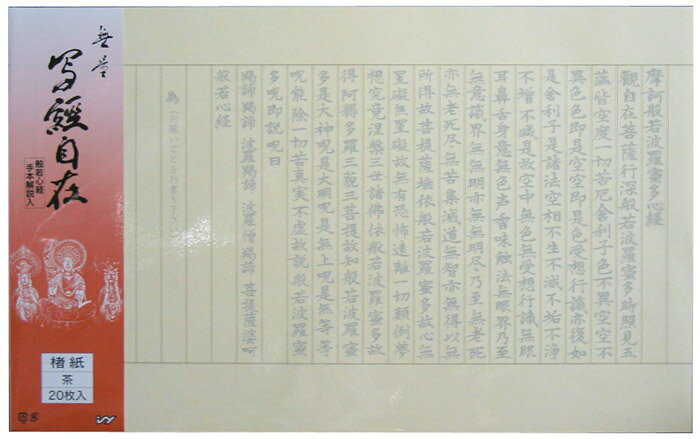 無量
写経自在
般若心経
手本解説入
楮紙
茶
20枚入
摩訶般若波羅蜜多心経
観自在菩薩行深般若波羅蜜多時照見五
蘊皆空度一切苦厄舎利子色不異空空不
異色色即是空空即是色受想行識亦復如
是舎利子是諸法空相不生不滅不垢不浄
不増不減是故空中無色無受想行識無眼
耳鼻舌身意無色声香味触法無眼界乃至
無意識界無無明亦無無明尽乃至無老死
亦無老死尽無苦集滅道無智亦無得以無
所得故菩提薩埵依般若波羅蜜多故心無
罣礙無罣礙故無有恐怖遠離一切顛倒夢
想究竟涅槃三世諸佛依般若波羅蜜多故
得阿耨多羅三藐三菩提故知般若波羅蜜
多是大神呪是大明呪是無上呪是無等等
呪能除一切苦真実不虚故説般若波羅蜜
多呪即説呪曰
羯諦羯諦 波羅羯諦 波羅僧羯諦 菩提薩婆呵
般若心経
為